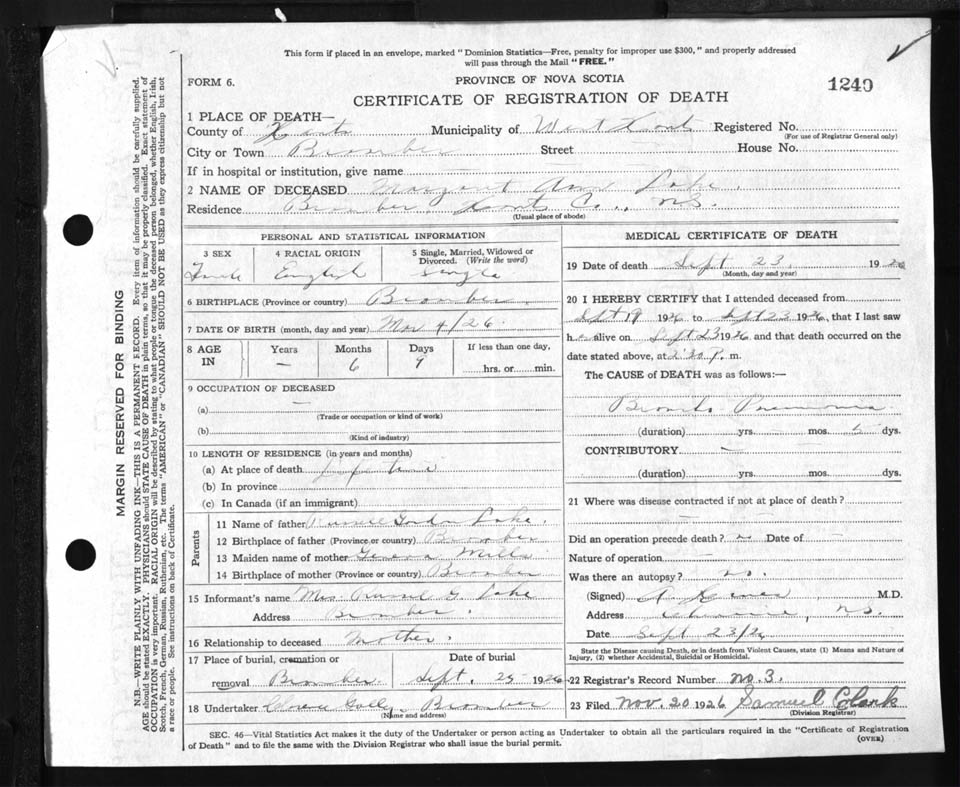 This form if placed in an envelope, marked "Dominion Statistics—Free, penalty for improper use $300," and properly addressed
will pass through the Mail "FREE."
FORM 6.
PROVINCE OF NOVA SCOTIA
1249
CERTIFICATE OF REGISTRATION OF DEATH
1 PLACE OF DEATH—
County of Hants Municipality of West Hants Registered No.
(For use of Registrar General only)
City or Town Street House No.
If in hospital or institution, give name
2 NAME OF DECEASED Margaret Ann Lake.
Residence Hants Co., N.S.
(Usual place of abode)
PERSONAL AND STATISTICAL INFORMATION
3 SEX 4 RACIAL ORIGIN 5 Single, Married, Widowed or
Divorced. (Write the word)
Female English Single
6 BIRTHPLACE (Province or country)
7 DATE OF BIRTH (month, day and year) Mar 4/26.
8 AGE IN Years Months Days If less than one day,
— 6 hrs. or min.
9 OCCUPATION OF DECEASED
(a) —
(Trade or occupation or kind of work)
(b)
(Kind of industry)
10 LENGTH OF RESIDENCE (in years and months)
(a) At place of death Life time
(b) In province
(c) In Canada (if an immigrant)
Parents
11 Name of father Russell Gordon Lake.
12 Birthplace of father (Province or country)
13 Maiden name of mother Mills
14 Birthplace of mother (Province or country)
15 Informant's name Mrs Russel G. Lake
Address
16 Relationship to deceased Mother.
17 Place of burial, cremation or Date of burial
removal Sept. 25 1926
18 Undertaker
(Name and address)
MEDICAL CERTIFICATE OF DEATH
19 Date of death Sept 23 1926
(Month, day and year)
20 I HEREBY CERTIFY that I attended deceased from
Sept 19 1926 to Sept 23 1926, that I last saw
h alive on Sept 23 1926 and that death occurred on the
date stated above, at 2:30 P. m.
The CAUSE of DEATH was as follows:—
Broncho Pneumonia
(duration) yrs. mos. 5 dys.
CONTRIBUTORY —
(duration) yrs. mos. dys.
21 Where was disease contracted if not at place of death?
—
Did an operation precede death? no Date of —
Nature of operation —
Was there an autopsy? no.
(Signed) M.D.
Address N.S.
Date Sept 23/26
State the Disease causing Death, or in death from Violent Causes, state (1) Means and Nature of
Injury, (2) whether Accidental, Suicidal or Homicidal.
22 Registrar's Record Number No. 3.
23 Filed Nov. 20 1926 Samuel Clark
(Division Registrar)
SEC. 46—Vital Statistics Act makes it the duty of the Undertaker or person acting as Undertaker to obtain all the particulars required in the "Certificate of Registration
of Death" and to file the same with the Division Registrar who shall issue the burial permit.
(OVER)
MARGIN RESERVED FOR BINDING
N.B.—WRITE PLAINLY WITH UNFADING INK—THIS IS A PERMANENT RECORD. Every item of information should be carefully supplied.
AGE should be stated EXACTLY. PHYSICIANS should STATE CAUSE OF DEATH in plain terms, so that it may be properly classified. Exact statement of
OCCUPATION is very important. RACIAL ORIGIN will be described by stating to what people or tongue the deceased person belonged, whether English, Irish,
Scotch, French, German, Russian, Ruthenian, etc. The terms "AMERICAN" or "CANADIAN" SHOULD NOT BE USED as they express citizenship but not
a race or people. See instructions on back of Certificate.